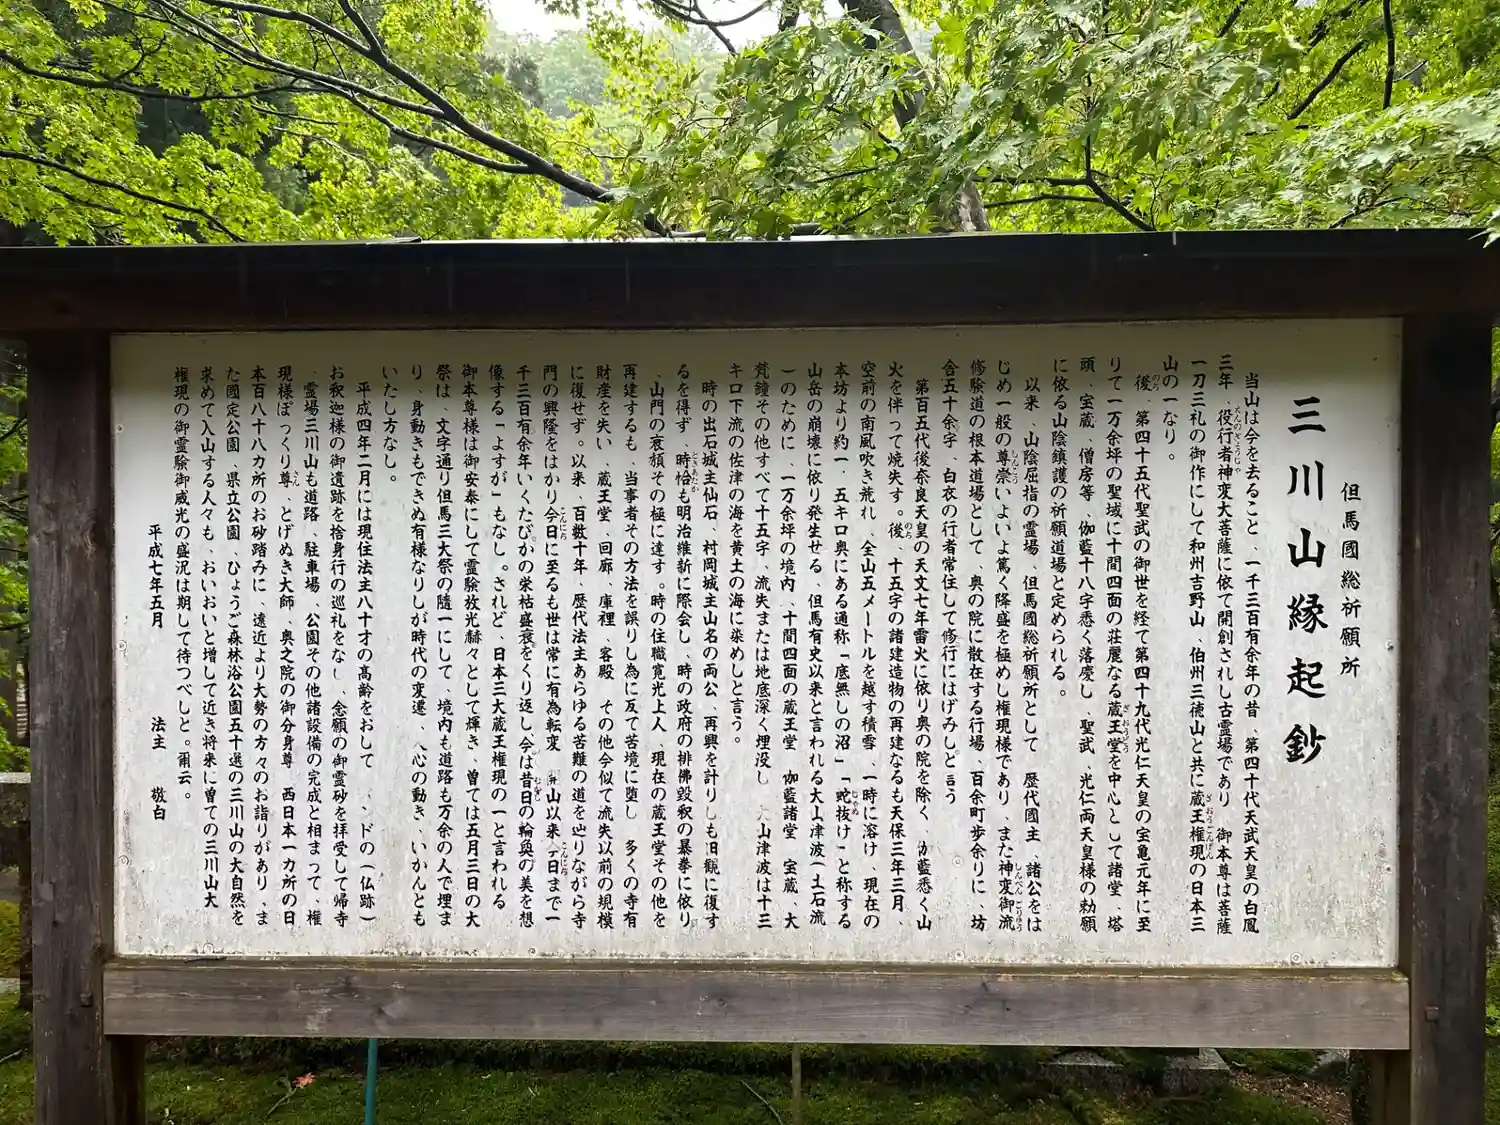 但馬國総祈願所
三川山縁起鈔
当山は今を去ること、一千三百有余年の昔、第四十代天武天皇の白鳳
三年、役行者神変大菩薩に依て開創されし古霊場であり 御本尊は菩薩
一刀三礼の御作にして和州吉野山、伯州三徳山と共に蔵王権現の日本三
山の一なり。
後、第四十五代聖武の御世を経て第四十九代光仁天皇の宝亀元年に至
りて一万余坪の聖域に十間四面の荘麗なる蔵王堂を中心として諸堂、塔
頭、宝蔵、僧房等、伽藍十八字悉く落慶し、聖武、光仁両天皇様の勅願
に依る山陰鎮護の祈願道場と定められる。
以来、山陰屈指の霊場、但馬國総祈願所として 歴代國主 諸公をは
じめ一般の尊崇いよいよ篤く降盛を極めし権現様であり、また神変御流
修験道の根本道場として、奥の院に散在する行場、百余町歩余りに、坊
舎五十余字、白衣の行者常住して修行にはげみしと言う
第百五代後奈良天皇の天文七年雷火に依り奥の院を除く、伽藍悉く山
火を伴って焼失す。後、十五字の諸建造物の再建なるも天保三年三月、
空前の南風吹き荒れ、全山五メートルを越す積雪、一時に溶け、現在の
本坊より約一．五キロ奥にある通称「底無しの沼」「蛇抜け」と称する
山岳の崩壊に依り発生せる、但馬有史以来と言われる大山津波（土石流
）のために、一万余坪の境内、十間四面の蔵王堂 伽藍諸堂 宝蔵、大
梵鐘その他すべて十五字、流失または地底深く埋没し 大山津波は十三
キロ下流の佐津の海を黄土の海に染めしと言う。
時の出石城主仙石、村岡城主山名の両公、再興を計りしも旧観に復す
るを得ず、時恰も明治維新に際会し、時の政府の排佛毀釈の暴挙に依り
、山門の衰頽その極に達す。時の住職寛光上人、現在の蔵王堂その他を
再建するも、当事者その方法を誤りし為に反て苦境に堕し 多くの寺有
財産を失い、蔵王堂、回廊、庫裡、客殿 その他今似て流失以前の規模
に復せず。以来、百数十年、歴代法主あらゆる苦難の道を辿りながら寺
門の興隆をはかり今日に至るも世は常に有為転変 開山以来今日まで一
千三百有余年いくたびかの栄枯盛衰をくり返し、今は昔日の輪奐の美を想
像する「よすが」もなし。されど、日本三大蔵王権現の一と言われる
御本尊様は御安泰にして霊験放光赫々として輝き、曽ては五月三日の大
祭は、文字通り但馬三大祭の随一にして、境内も道路も万余の人で埋ま
り、身動きもできぬ有様なりしが時代の変遷 人心の動き、いかんとも
いたし方なし。
平成四年二月には現住法主八十才の高齢をおして インドの（仏跡）
お釈迦様の御遺跡を捨身行の巡礼をなし、念願の御霊砂を拝受して帰寺
、霊場三川山も道路、駐車場、公園その他諸設備の完成と相まって、権
現様ぽっくり尊、とげぬき大師、奥之院の御分身尊 西日本一カ所の日
本百八十八カ所のお砂踏みに、遠近より大勢の方々のお詣りがあり、ま
た國定公園、県立公園、ひょうご森林浴公園五十選の三川山の大自然を
求めて入山する人々も、おいおいと増して近き将来に曽ての三川山大
権現の御霊験御威光の盛況は期して待つべしと。爾云。
平成七年五月 法主 敬白